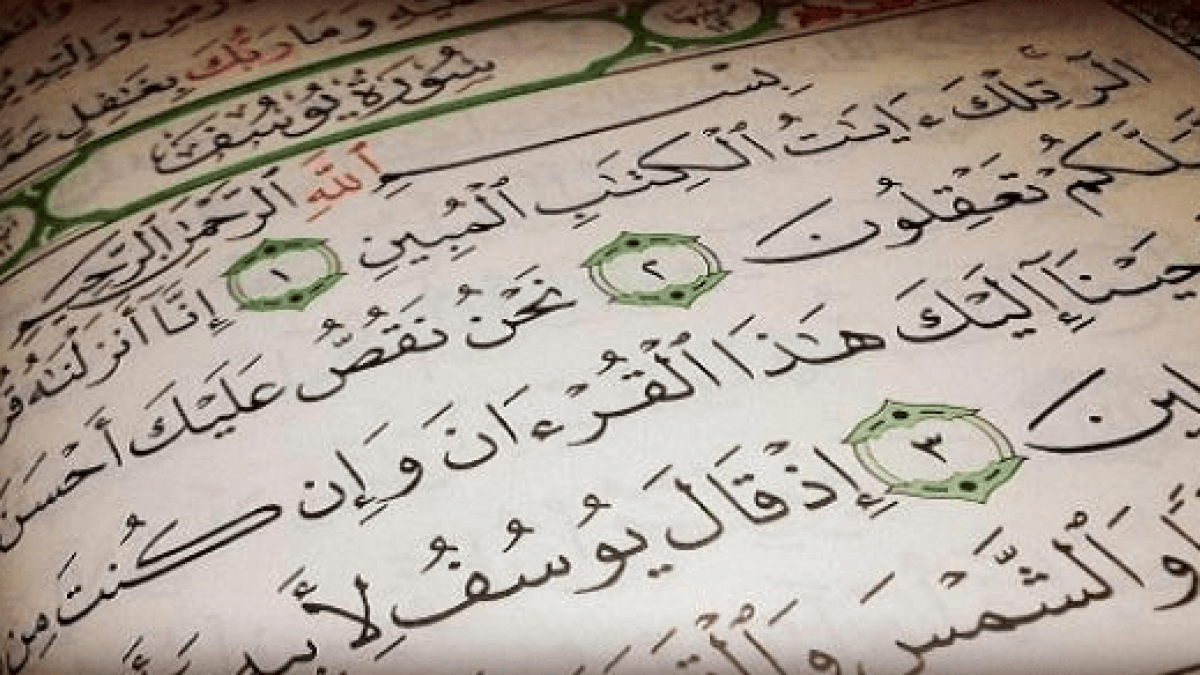 رْضِ وَإِلَيْهِ
وَمَا رَبُّكَ بِغَٰفِلٍ عَمَّ
سُورَةُ يُوسُفَ
بِسْمِ ٱللَّهِ ٱلرَّحْمَٰنِ ٱلرَّحِيمِ
الٓر تِلْكَ ءَايَٰتُ ٱلْكِتَٰبِ ٱلْمُبِينِ ١ إِنَّآ أَنزَلْنَٰهُ قُ
لَّعَلَّكُمْ تَعْقِلُونَ ٢ نَحْنُ نَقُصُّ عَلَيْكَ أَحْسَنَ
حَيْنَآ إِلَيْكَ هَٰذَا ٱلْقُرْءَانَ وَإِن كُنتَ مِن
لِينَ ٣ إِذْ قَالَ يُوسُفُ لِأَبِيهِ
وَٱلشَّمْسَ وَٱلْقَمَرَ